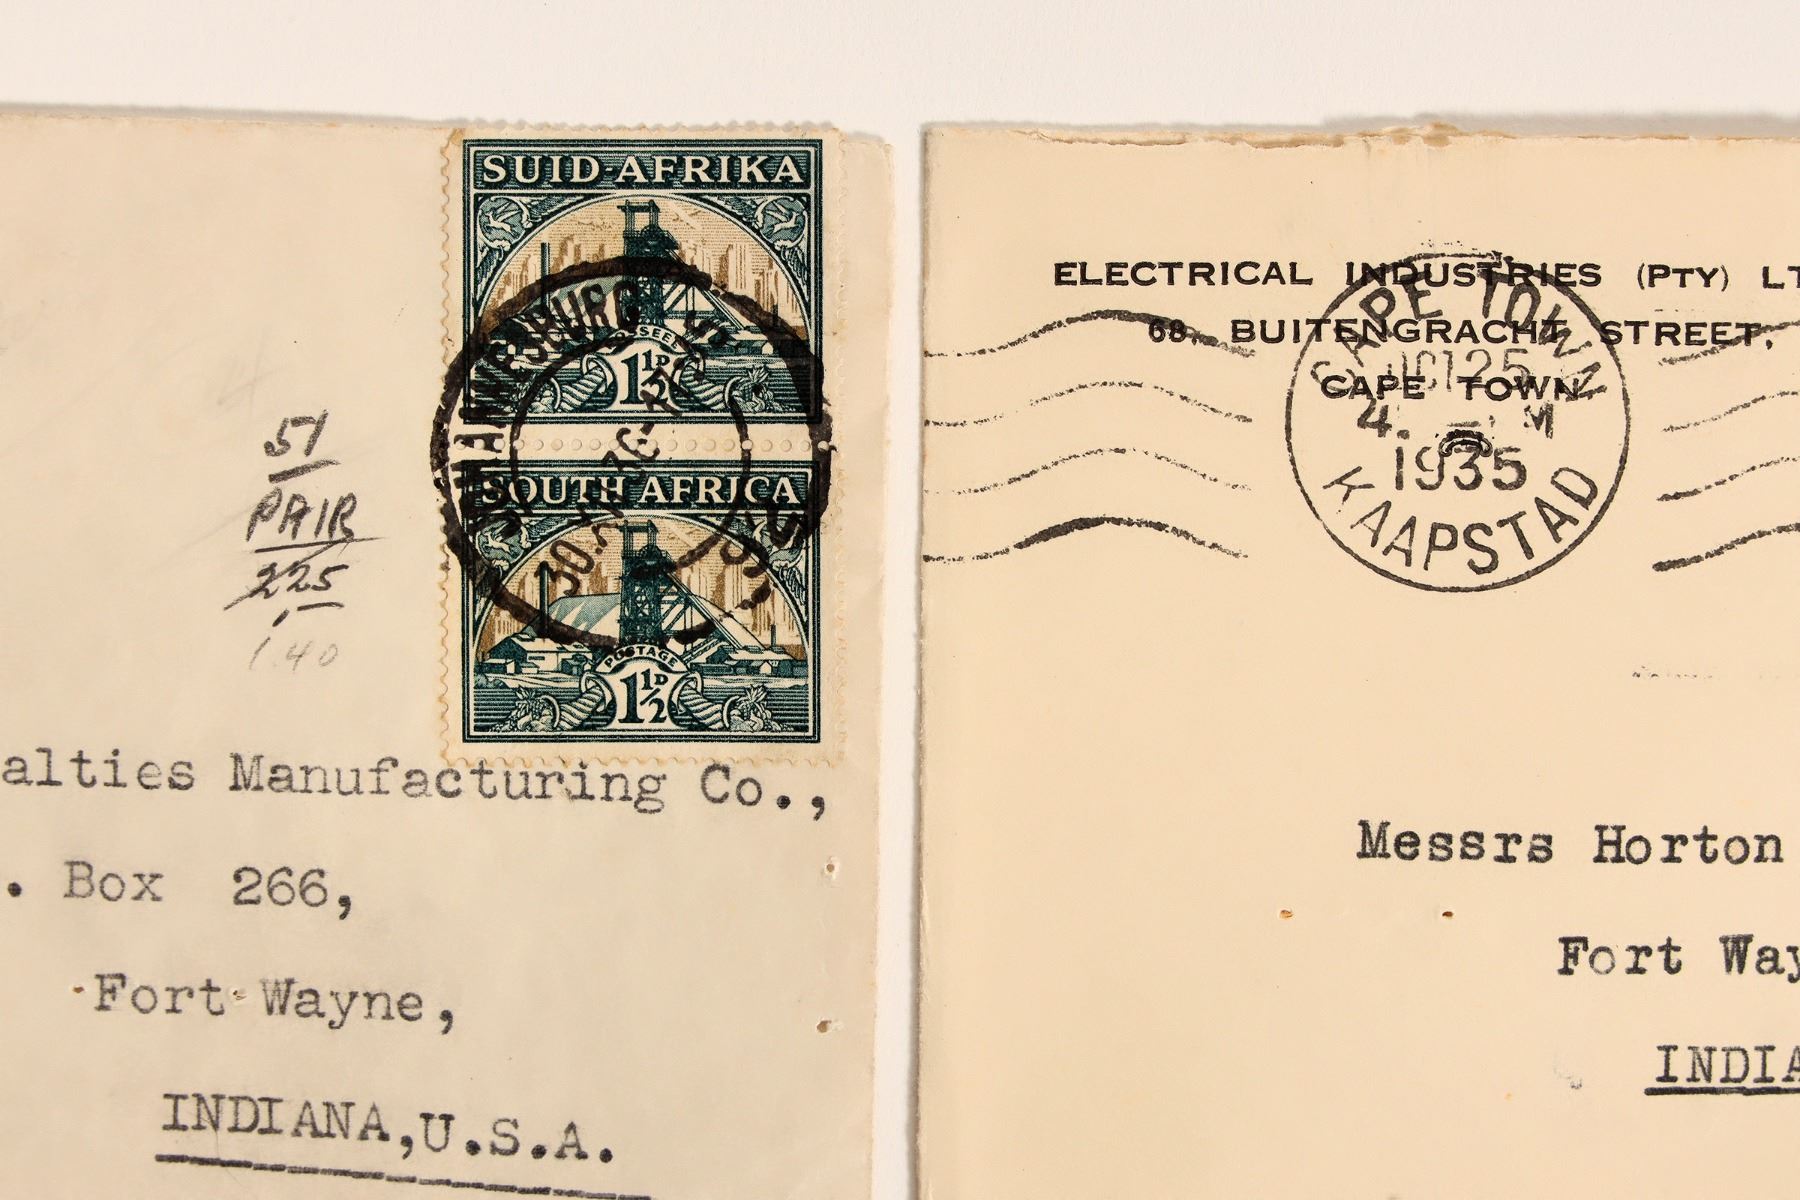 SUID-AFRIKA
POSSEEL
1½D
SOUTH AFRICA
POSTAGE
1½D
51
PAIR
225
1.40
alties Manufacturing Co.,
. Box 266,
Fort Wayne,
INDIANA, U.S.A.
ELECTRICAL INDUSTRIES (PTY) LT
68, BUITENGRACHT STREET,
CAPE TOWN
CAPE TOWN
25
4 M
1935
KAAPSTAD
Messrs Horton
Fort Way
INDIA